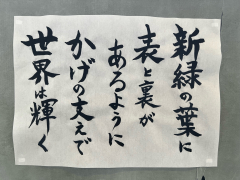 新緑の葉に
表と裏が
あるように
かげの支えで
世界は輝く